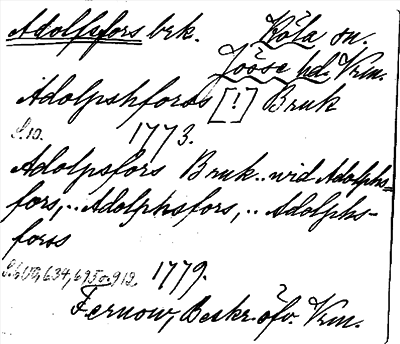 Adolfsfors brk. Köla sn.
Jösse hd. Vrm.
Adolpshforss [!] Bruk
S.10. 1773.
Adolpsfors Bruk.. wid Adolphs=
fors,.. Adolphsfors,.. Adolphs-
forss
634, 695 o. 912. 1779.
Fernow, Beskr. öfv. Vrm.